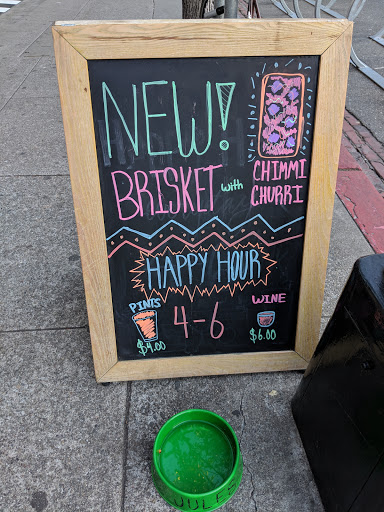 NEW!
BRISKET with
CHIMMI
CHURRI
HAPPY HOUR
PINTS
$4.00
4-6
WINE
$6.00
JULES